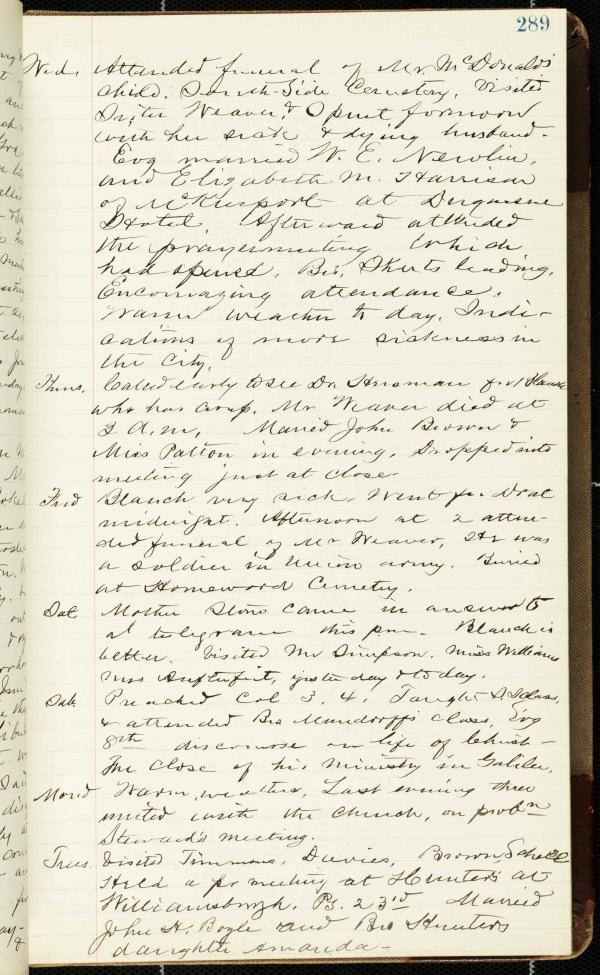 289
Wed. Attended funeral of Mr. McDonald's
child. South-Side Cemetery. Visited
Sister Weaver, & Spent formoon
with her sick & dying husband.
Evg married W. E. Newlin,
and Elizabeth M. Harrison
of McKeesport at Duquesne
Hotel. Afterward attended
the prayermeeting which
had opened, Bro. Skerts leading.
Encouraging attendance.
Warm weather to day. Indi-
cations of more sickness in
the City.
Thurs. Called early to see Dr. Husman for
who has croup. Mr Weaver died at
A.M. Married John Brown &
Miss Patton in evening. Dropped into
meeting just at close.
Frid Blanch very sick. Went for Dr at
midnight. Afternoon at 2 atten-
ded funeral of Mr Weaver, He was
a soldier in Union army. Buried
at Homewood Cemetery.
Sat. Mother Stone came in answer to
a telegram this pm. Blanch is
better. Visited Mr Simpson. Miss Williams
yesterday & to day.
Sab. Preached Col 3, 4. Taught S.S. class,
& attended Bro Mundorff's class, Evg
8th discourse on life of Christ-
The close of his ministry in Galilee.
Mond Warm weather, Last evening three
united with the church, on probn
Steward's meeting.
Tues. Visited Timmons, Davies, Brown,
Held a pr meeting at Hunter's at
Williamsburgh. Ps. 23rd Married
John H. Boyle and Bro Hunter's
daughter Amanda-